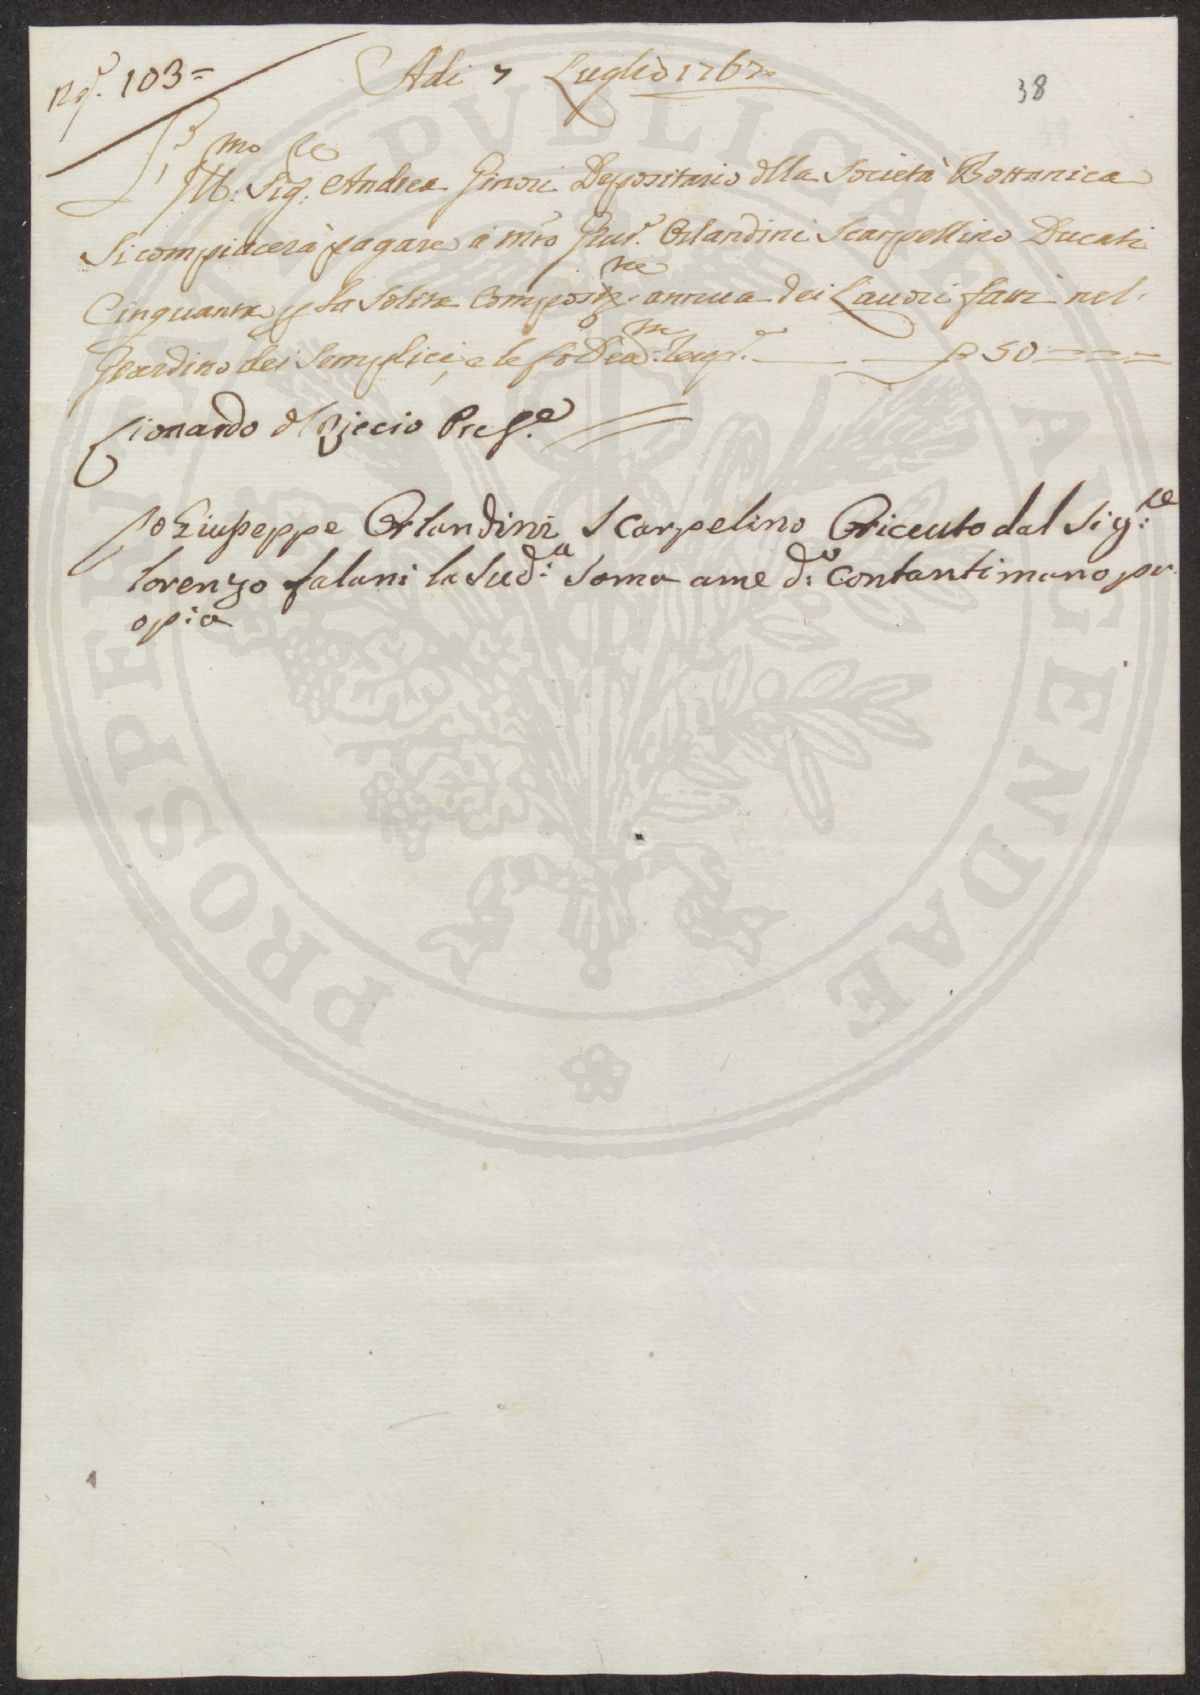 N.º 103=
Adi 7 Luglio 1767
38
Ill:mo Sig:re Andrea Ginori Depositario della Società Bottanica
Si compiacerà pagare à mro Gius.e Orlandini Scarpellino Ducati
Cinquanta p la Solita Composiz:ne annua dei Lauori fatti nel
Giardino dei Semplici, e le fo Dea:m
50
Lionardo del Riccio Pres.e
Io Giuseppe Orlandini Scarpelino O riceuto dal Sig:re
lorenzo falani la Sud:a Soma a me d:o Contanti mano pr
opia
PROSPERITATI PVBLICAE AVGENDAE